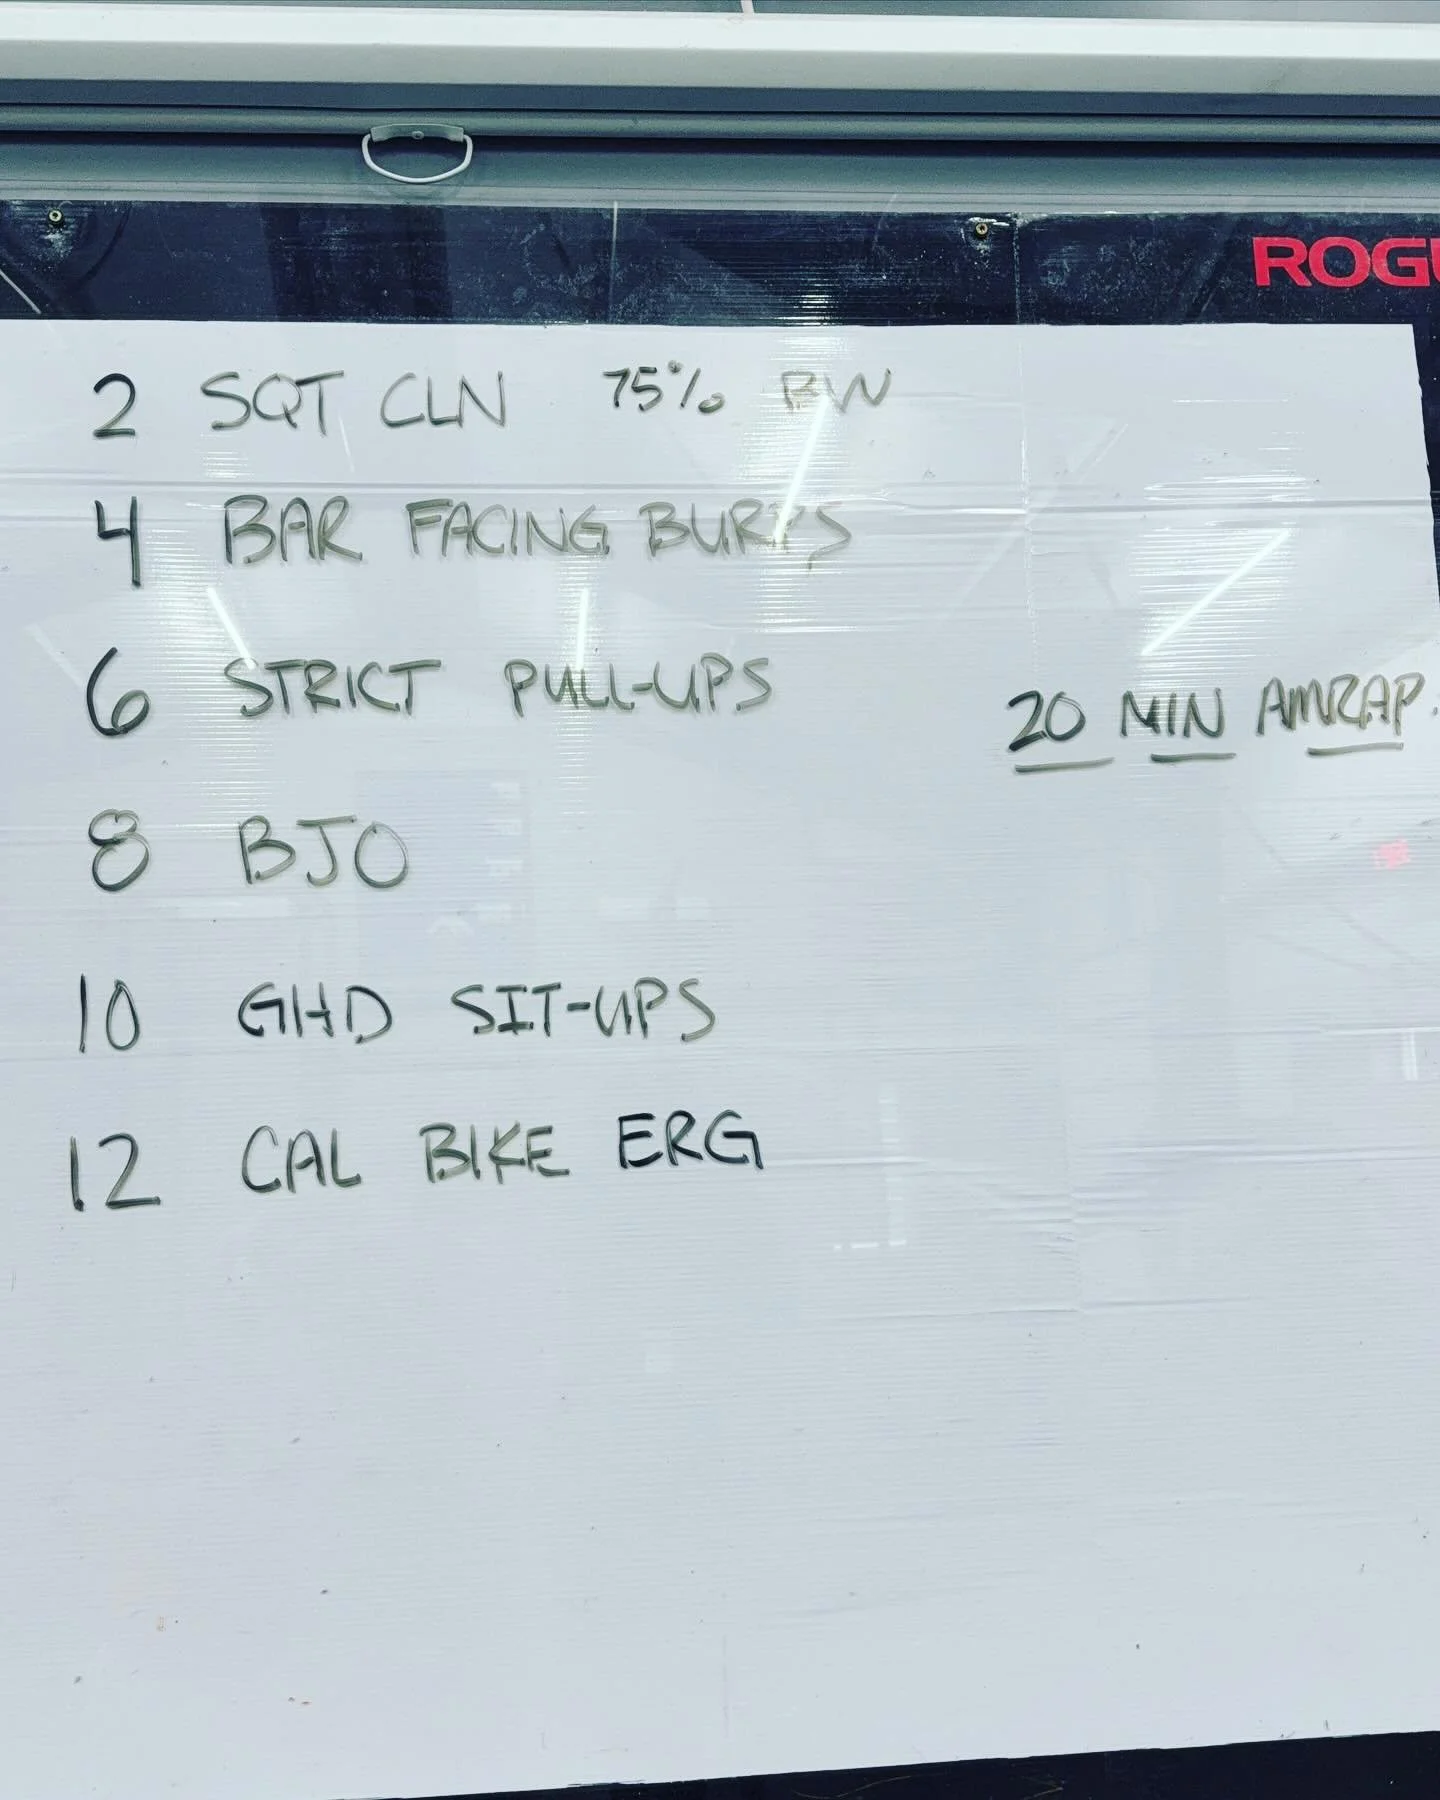 ROGU
2 SQT CLN 75% BW
4 BAR FACING BURPS
6 STRICT PULL-UPS
20 MIN AMRAP.
8 BJO
10 GHD SIT-UPS
12 CAL BIKE ERG